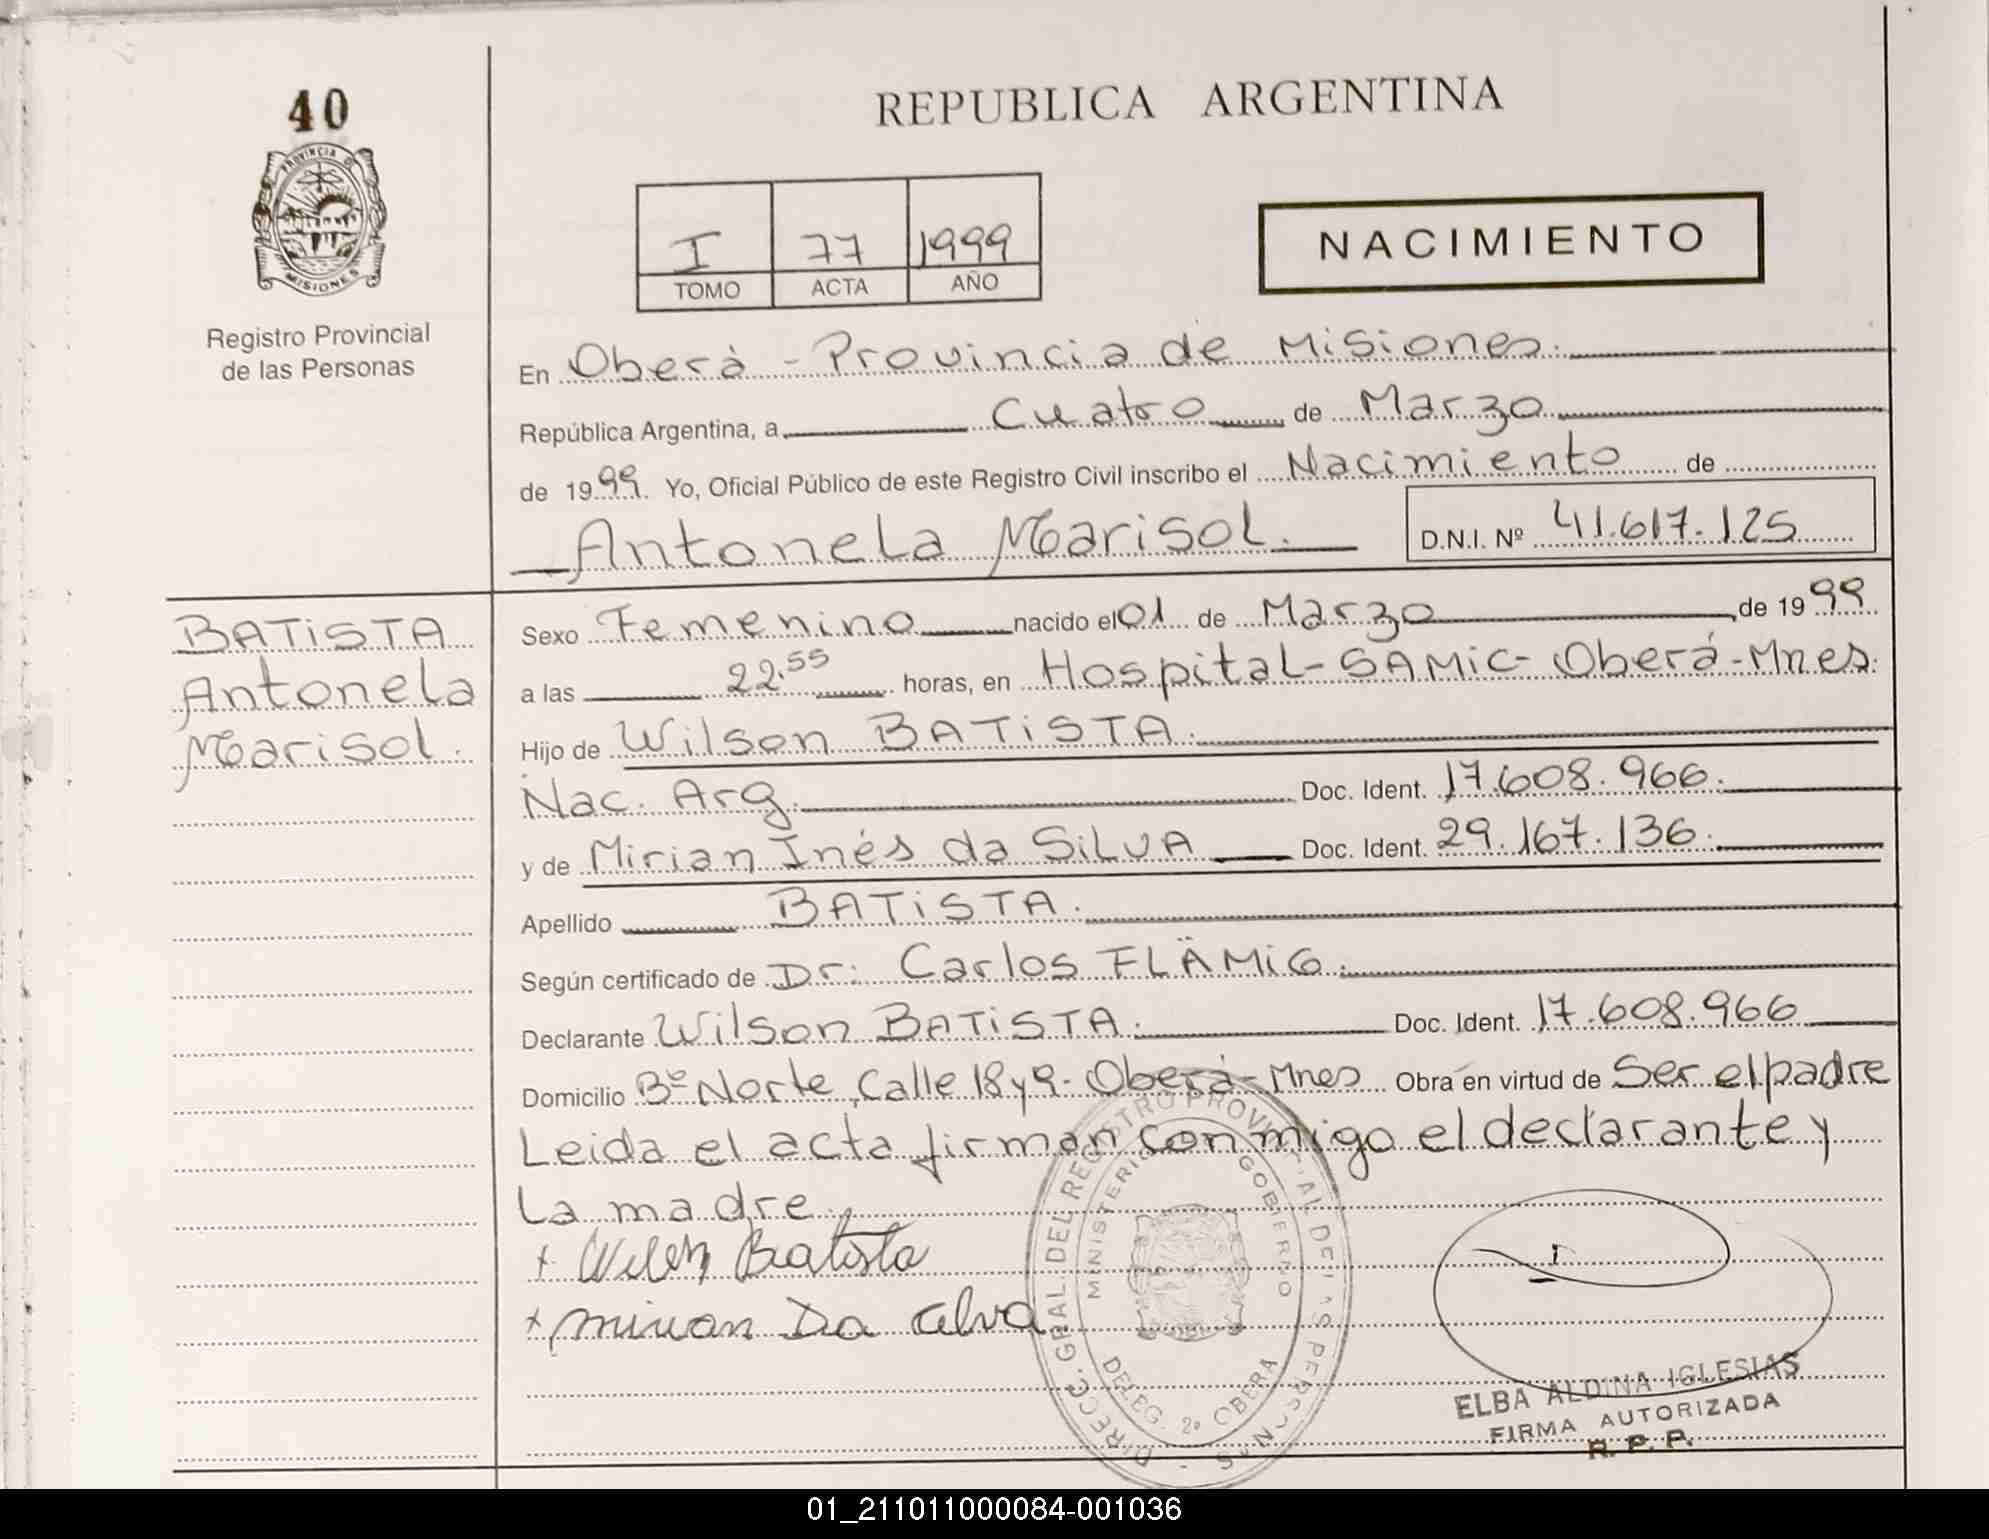 40
PROVINCIA DE
MISIONES
Registro Provincial
de las Personas
REPUBLICA ARGENTINA
I 77 1999
TOMO ACTA AÑO
NACIMIENTO
En Oberá - Provincia de Misiones.
República Argentina, a Cuatro de Marzo
de 1999. Yo, Oficial Público de este Registro Civil inscribo el Nacimiento de
Antonela Marisol. D.N.I. Nº 41.617.125
BATiSTA
Antonela
Marisol.
Sexo Femenino nacido el 01 de Marzo de 1999
a las 22.55 horas, en Hospital-SAMiC-Oberá-Mnes.
Hijo de Wilson BATiSTA.
Nac. Arg. Doc. Ident. 17.608.966.
y de Mirian Inés da SiLVA Doc. Ident. 29.167.136.
Apellido BATiSTA.
Según certificado de Dr: Carlos FLÄMiG.
Declarante Wilson BATiSTA. Doc. Ident. 17.608.966
Domicilio Bº Norte, Calle 18 y 9-Oberá-Mnes Obra en virtud de Ser el padre
Leida el acta firman conmigo el declarante y
la madre.
x Batista
x Da
DIRECC. GRAL. DEL REGISTRO PROVINCIAL DE LAS PERSONAS
MINISTERIO GOBIERNO
DELEG. 2º OBERA
ELBA ALDINA IGLESIAS
FIRMA AUTORIZADA
R. P. P.
01_211011000084-001036